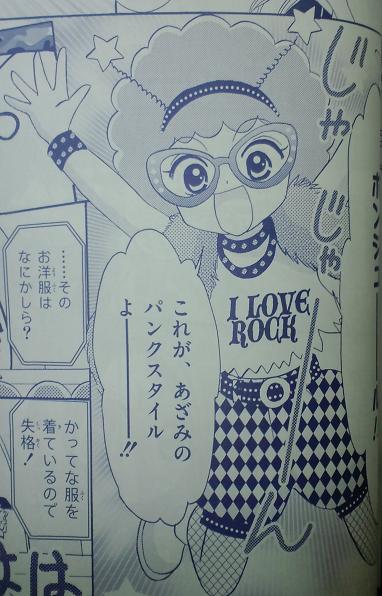 じゃ
じゃーーん
I LOVE
ROCK
これが、あざみの
パンクスタイル
よーーー!!
……その
お洋服は
なにかしら？
かってな服を
着ているので
失格！